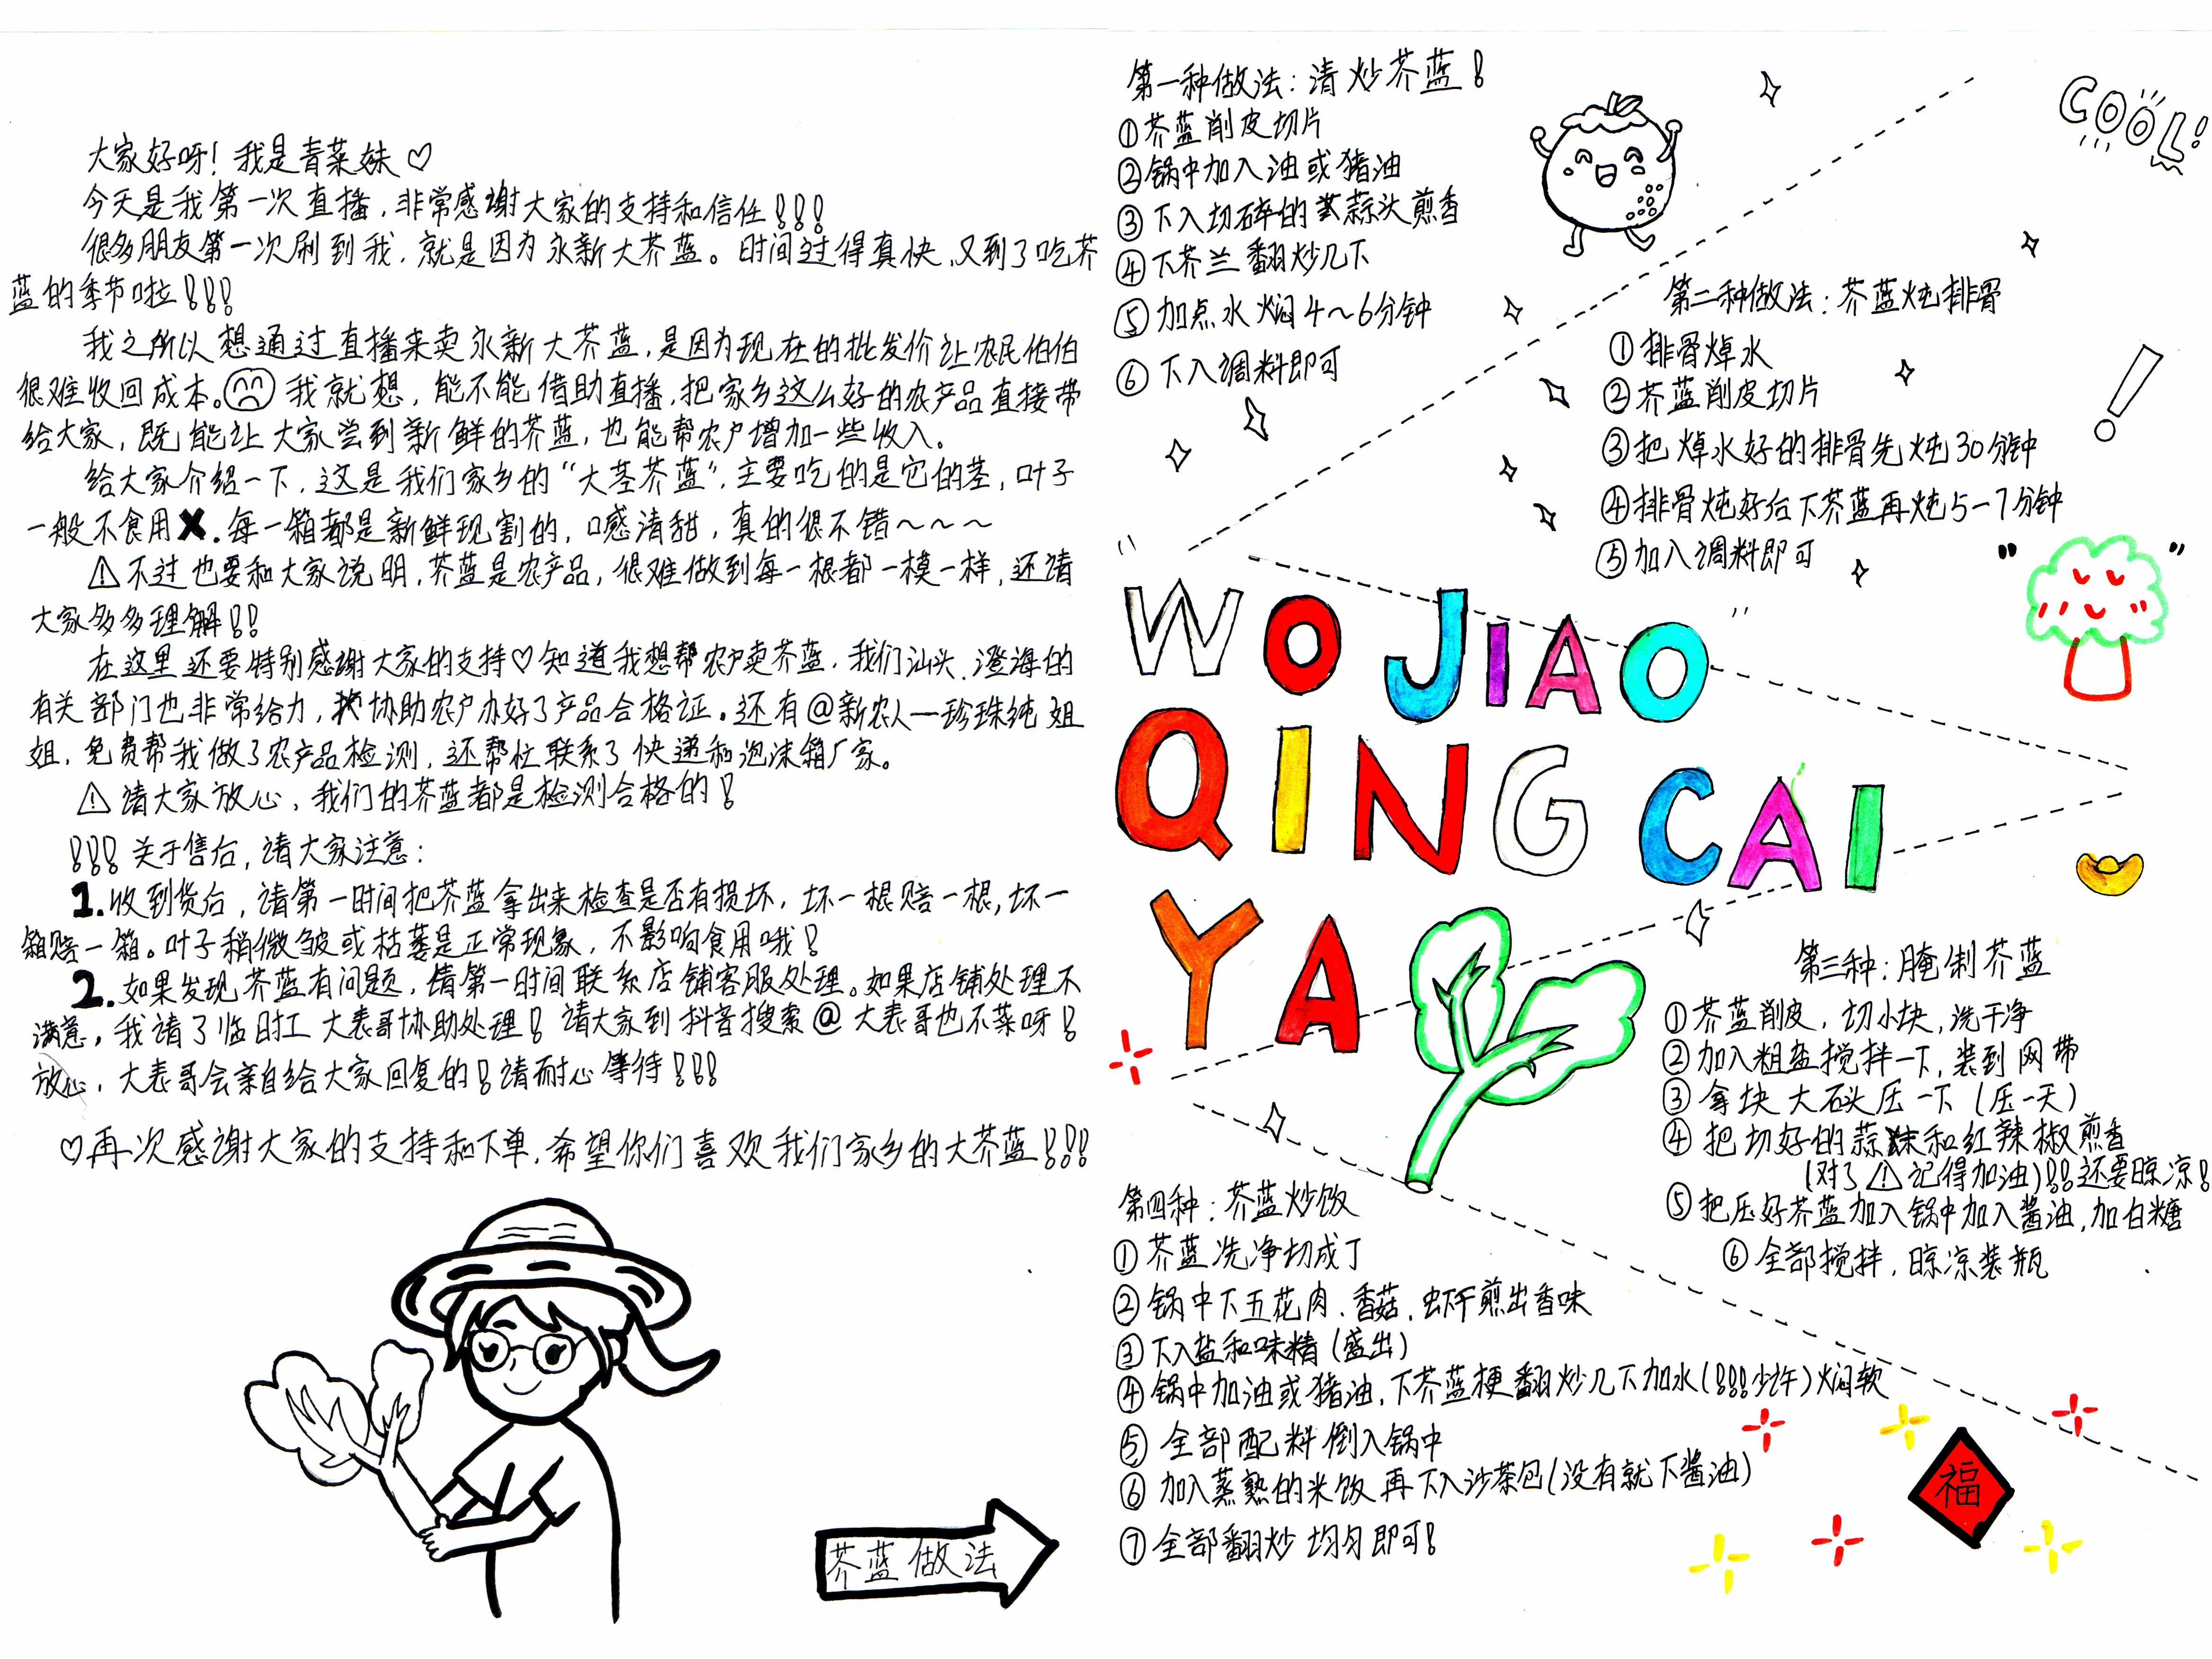 大家好呀！我是青菜妹♡
今天是我第一次直播，非常感谢大家的支持和信任！！！
很多朋友第一次刷到我，就是因为永新大芥蓝。时间过得真快，又到了吃芥
蓝的季节啦！！！
我之所以想通过直播来卖永新大芥蓝，是因为现在的批发价让农民伯伯
很难收回成本。我就想，能不能借助直播，把家乡这么好的农产品直接带
给大家，既能让大家尝到新鲜的芥蓝，也能帮农户增加一些收入。
给大家介绍一下，这是我们家乡的“大茎芥蓝”，主要吃的是它的茎，叶子
一般不食用✖.每一箱都是新鲜现割的，口感清甜，真的很不错～～～
⚠不过也要和大家说明，芥蓝是农产品，很难做到每一根都一模一样，还请
大家多多理解！！
在这里还要特别感谢大家的支持♡知道我想帮农户卖芥蓝，我们汕头、澄海的
有关部门也非常给力，协助农户办好了产品合格证。还有@新农人一珍珠纯姐
姐，免费帮我做了农产品检测，还帮忙联系了快递和泡沫箱厂家。
⚠请大家放心，我们的芥蓝都是检测合格的！
！！！关于售后，请大家注意：
1.收到货后，请第一时间把芥蓝拿出来检查是否有损坏，坏一根赔一根，坏一
箱赔一箱。叶子稍微皱或枯萎是正常现象，不影响食用哦！
2.如果发现芥蓝有问题，请第一时间联系店铺客服处理。如果店铺处理不
满意，我请了临时工大表哥协助处理！请大家到抖音搜索@大表哥也不菜呀！
放心，大表哥会亲自给大家回复的！请耐心等待！！！
♡再次感谢大家的支持和下单，希望你们喜欢我们家乡的大芥蓝！！！
芥蓝做法
第一种做法：清炒芥蓝！
①芥蓝削皮切片
②锅中加入油或猪油
③下入切碎的蒜头煎香
④下芥兰翻炒几下
⑤加点水焖4～6分钟
⑥下入调料即可
COOL!
第二种做法：芥蓝炖排骨
①排骨焯水
②芥蓝削皮切片
③把焯水好的排骨先炖30分钟
④排骨炖好后下芥蓝再炖5-7分钟
⑤加入调料即可
WO JIAO
QING CAI
YA
第三种：腌制芥蓝
①芥蓝削皮，切小块，洗干净
②加入粗盐搅拌一下，装到网带
③拿块大石头压一下（压一天）
④把切好的蒜末和红辣椒煎香
（对了⚠记得加油）！！还要晾凉！
⑤把压好芥蓝加入锅中加入酱油，加白糖
⑥全部搅拌，晾凉装瓶
第四种：芥蓝炒饭
①芥蓝洗净切成丁
②锅中下五花肉、香菇、虾干煎出香味
③下入盐和味精（盛出）
④锅中加油或猪油，下芥蓝梗翻炒几下加水（！！！少许）焖软
⑤全部配料倒入锅中
⑥加入蒸熟的米饭再下入沙茶包（没有就下酱油）
⑦全部翻炒均匀即可！
福